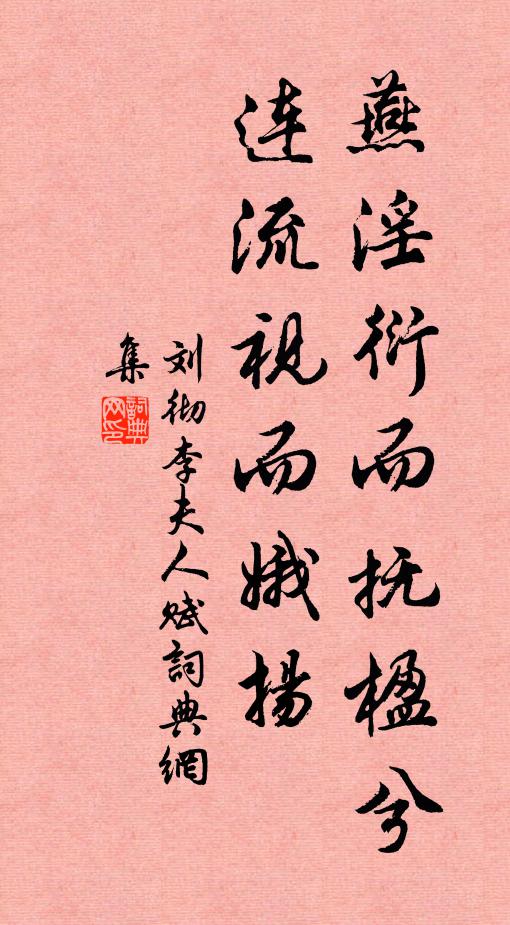 燕淫衍而抚楹兮
连流视而娥扬
刘彻李夫人赋词典網
集
詞典網印